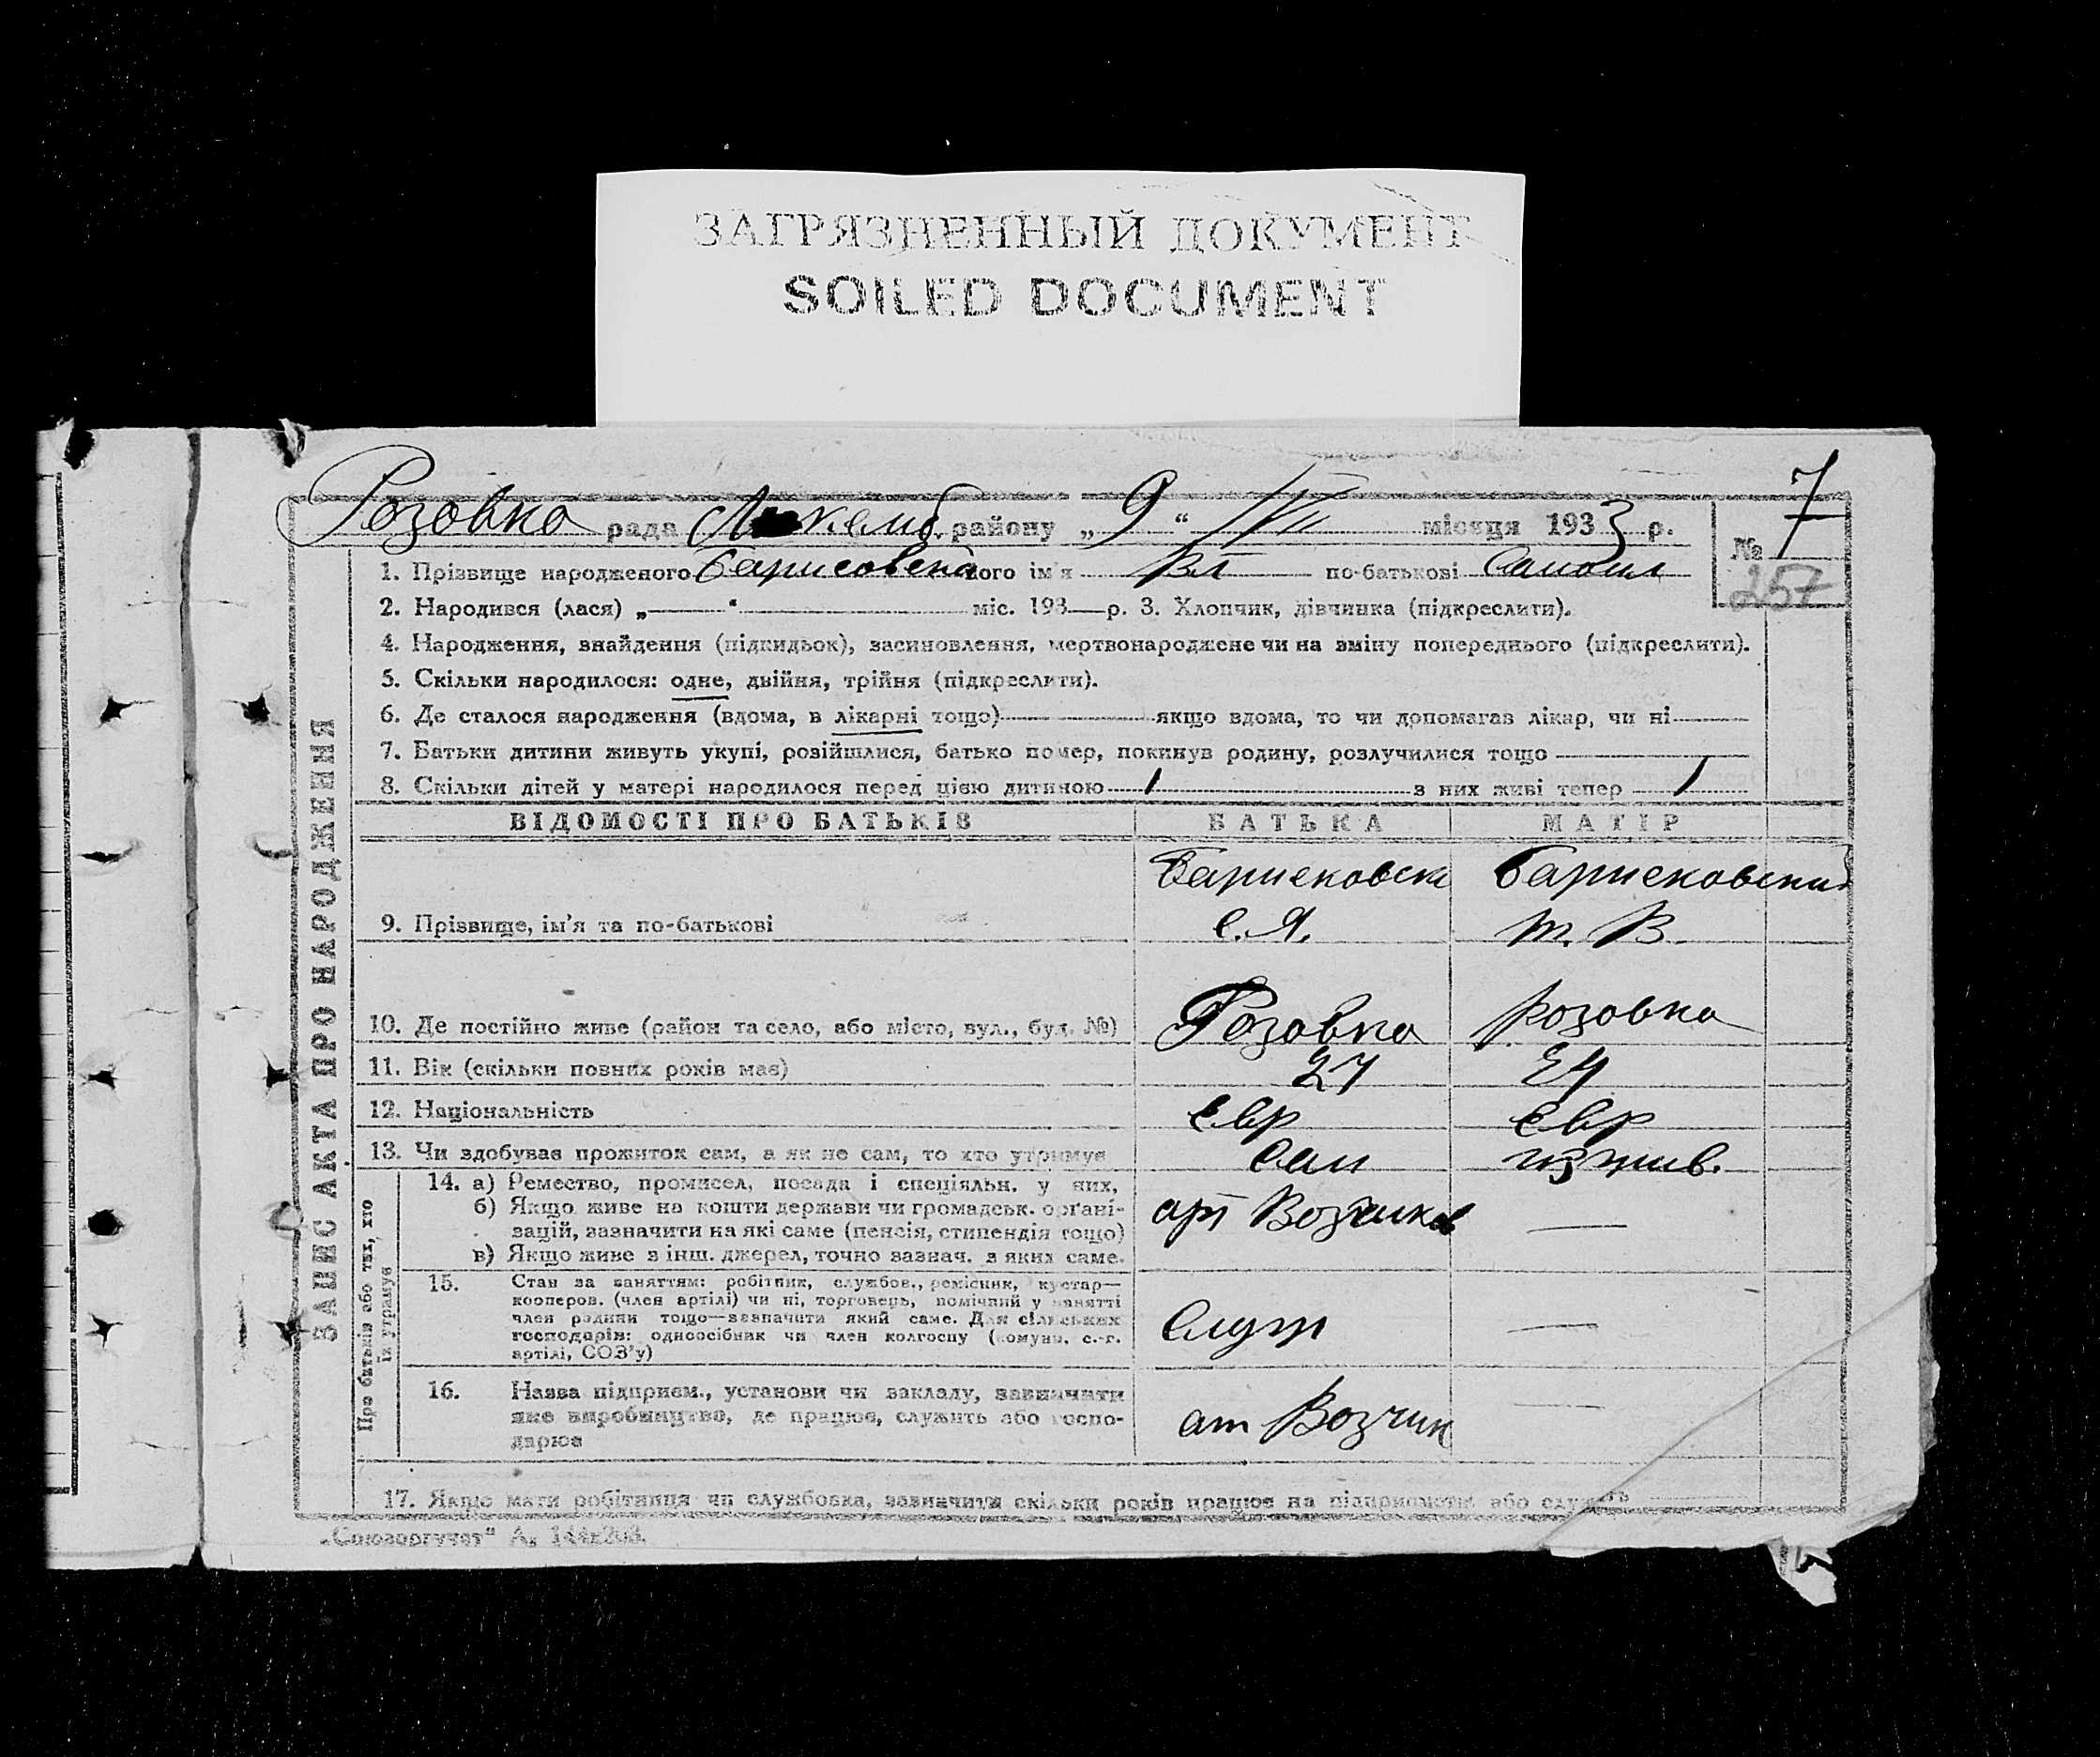 ЗАГРЯЗНЕННЫЙ ДОКУМЕНТ
SOILED DOCUMENT
7
Розовка рада району „ 9 “ VII місяця 1933 р.
№ 7
1. Прізвище народженого його ім'я Вл по-батькові Самоил
257
2. Народився (лася) „ “ міс. 193 р. 3. Хлопчик, дівчинка (підкреслити).
4. Народження, знайдення (підкидьок), засиновлення, мертвонароджене чи на зміну попереднього (підкреслити).
5. Скільки народилося: одне, двійня, трійня (підкреслити).
6. Де сталося народження (вдома, в лікарні тощо) якщо вдома, то чи допомагав лікар, чи ні
7. Батьки дитини живуть укупі, розійшлися, батько помер, покинув родину, розлучилися тощо
8. Скільки дітей у матері народилося перед цією дитиною 1 з них живі тепер 1
ЗАПИС АКТА ПРО НАРОДЖЕННЯ
ВІДОМОСТІ ПРО БАТЬКІВ БАТЬКА МАТІР
9. Прізвище, ім'я та по-батькові Барисковски С. Я. Барисковский Т. В.
10. Де постійно живе (район та село, або місто, вул., буд. №) Розовка Розовка
11. Вік (скільки повних років має) 27 24
12. Національність евр евр
13. Чи здобуває прожиток сам, а як не сам, то хто утримує Сам
Про батьків або тих, хто їх утримує
14. а) Ремество, промисел, посада і спеціяльн. у них,
б) Якщо живе на кошти держави чи громадськ. органі-
зацій, зазначити на які саме (пенсія, стипендія тощо)
в) Якщо живе з інш. джерел, точно зазнач. з яких саме.
арт Возчиков
15. Стан за заняттям: робітник, службов., ремісник, кустар—
кооперов. (член артілі) чи ні, торговець, помічний у занятті
член родини тощо—зазначити який саме. Для сільських
господарів: одноосібник чи член колгоспу (комуни, с.-г.
артілі, СОЗ'у)
Служ
16. Назва підприєм., установи чи закладу, зазначити
яке виробництво, де працює, служить або госпо-
дарює
ат Возчик
17. Якщо мати робітниця чи службовка, зазначити скільки років працює на підприємстві або служить
„Союзоргучет“